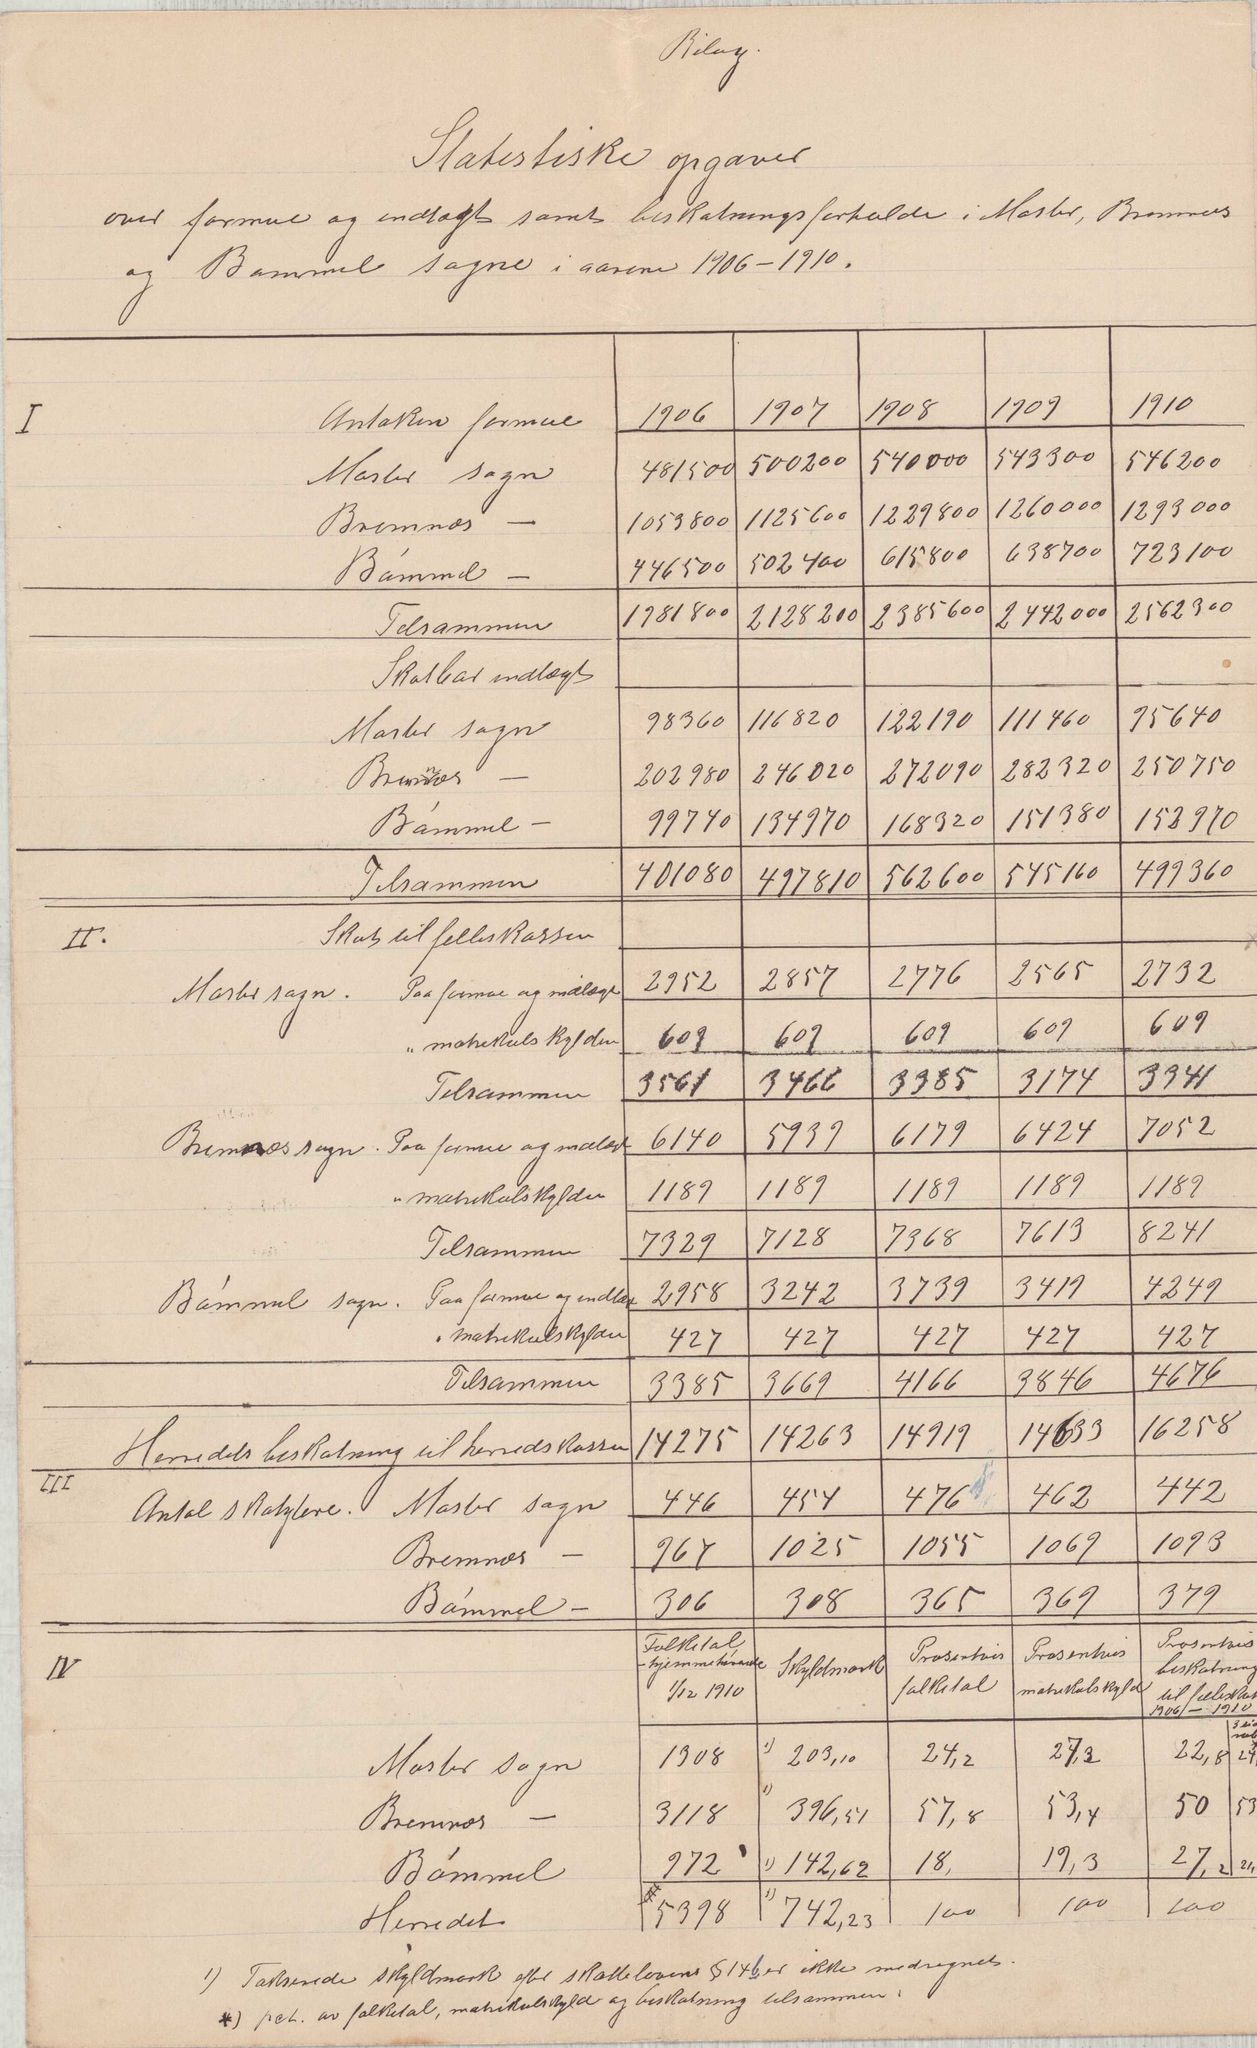 Bilag.
Statestiske opgaver
over formue og indtægt samt beskatningsforholde i Moster, Bremnes
og Bømmel sogne i aarene 1906-1910.
I Antaken formue 1906 1907 1908 1909 1910
Moster sogn 481500 500200 540000 543300 546200
Bremnes — 1053800 1125600 1229800 1260000 1293000
Bømmel — 446500 502400 615800 638700 723100
Tilsammen 1981800 2128200 2385600 2442000 2562300
Skatbar indtægt
Moster sogn 98360 116820 122190 111460 95640
Bremnes — 202980 246020 272090 282320 250750
Bømmel — 99740 134970 168320 151380 153970
Tilsammen 401080 497810 562600 545160 499360
II. Skat til felleskassen
Moster sogn. Paa formue og indtægt 2952 2857 2776 2565 2732
" matrikulskylden 609 609 609 609 609
Tilsammen 3561 3466 3385 3174 3341
Bremnes sogn. Paa formue og indtægt 6140 5939 6179 6424 7052
" matrikulskylden 1189 1189 1189 1189 1189
Tilsammen 7329 7128 7368 7613 8241
Bømmel sogn. Paa formue og indtæ 2958 3242 3739 3419 4249
" matrikulskylden 427 427 427 427 427
Tilsammen 3385 3669 4166 3846 4676
Herredets beskatning til herredskassen 14275 14263 14919 14633 16258
III
Antal skatydere. Moster sogn 446 454 476 462 442
Bremnes — 967 1025 1055 1069 1093
Bømmel — 306 308 365 369 379
IV Folketal hjemmehørende 1/12 1910 Skyldmark Prosentvis folketal Prosentvis matrikulskyld Prosentvis beskatning til felleskas 1906-1910
Moster sogn 1308 1) 203,10 24,2 27,3 22,8
Bremnes — 3118 1) 396,51 57,8 53,4 50 53
Bømmel 972 1) 142,62 18, 19,3 27,2
Herredet 5398 1) 742,23 100 100 100
1) Takserede skyldmark efter skattelovens § 14 b er ikke medregnet.
*) pct. av folketal, matrikulskyld og beskatning tilsammen.